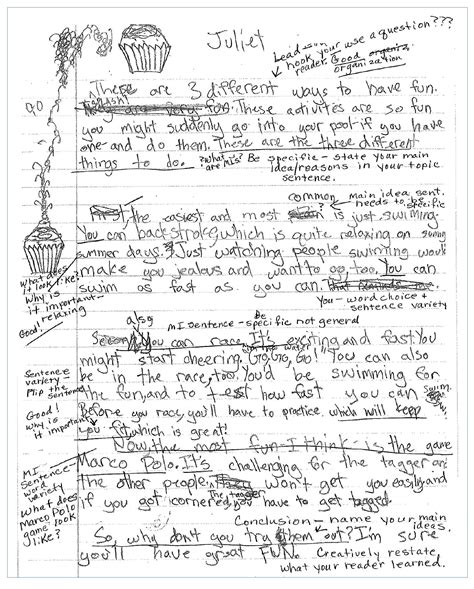 Juliet
Lead - hook your reader. use a question???
Good organization
These are 3 different ways to have fun.
Splash!
GO
They are very fun. These activities are so fun
you might suddenly go into your pool if you have
one and do them. These are the three different
things to do.
*What are this? Be specific - state your main
idea/reasons in your topic
sentence.
main idea sent. needs to be specific
common
First the easiest and most is just swimming.
You can backstroke, which is quite relaxing on
summer days. Just watching people swimming would
make you jealous and want to go, too. You can
swim as fast as you can.
What does it look like?
Why is it important-
Good! relaxing
You - word choice +
sentence variety
MI Sentence - be specific not general
also
Second you can race. It's exciting and fast. You
might start cheering, "Go, Go, Go!" You can also
be in the race, too. You'd be swimming for
the fun, and to test how fast you can swim.
Before you race, you'll have to practice, which will keep
you fit, which is great!
Sentence variety
Flip the sentence
Good! Why is it important
Now, the most fun - I think - is the game
Marco Polo. It's challenging for the tagger are
the other people won't get you easily, and
The tagger
if you got cornered, you have to get tagged.
MI Sentence - word variety
What does Marco Polo game look like?
Conclusion - name your main
ideas.
So, why don't you try them out? I'm sure
you'll have great FUN.
Creatively restate
what your reader learned.